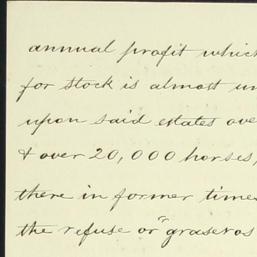 annual profit which
for stock is almost un
upon said estates ove
& over 20,000 horses,
there in former times
the refuse or "graseros